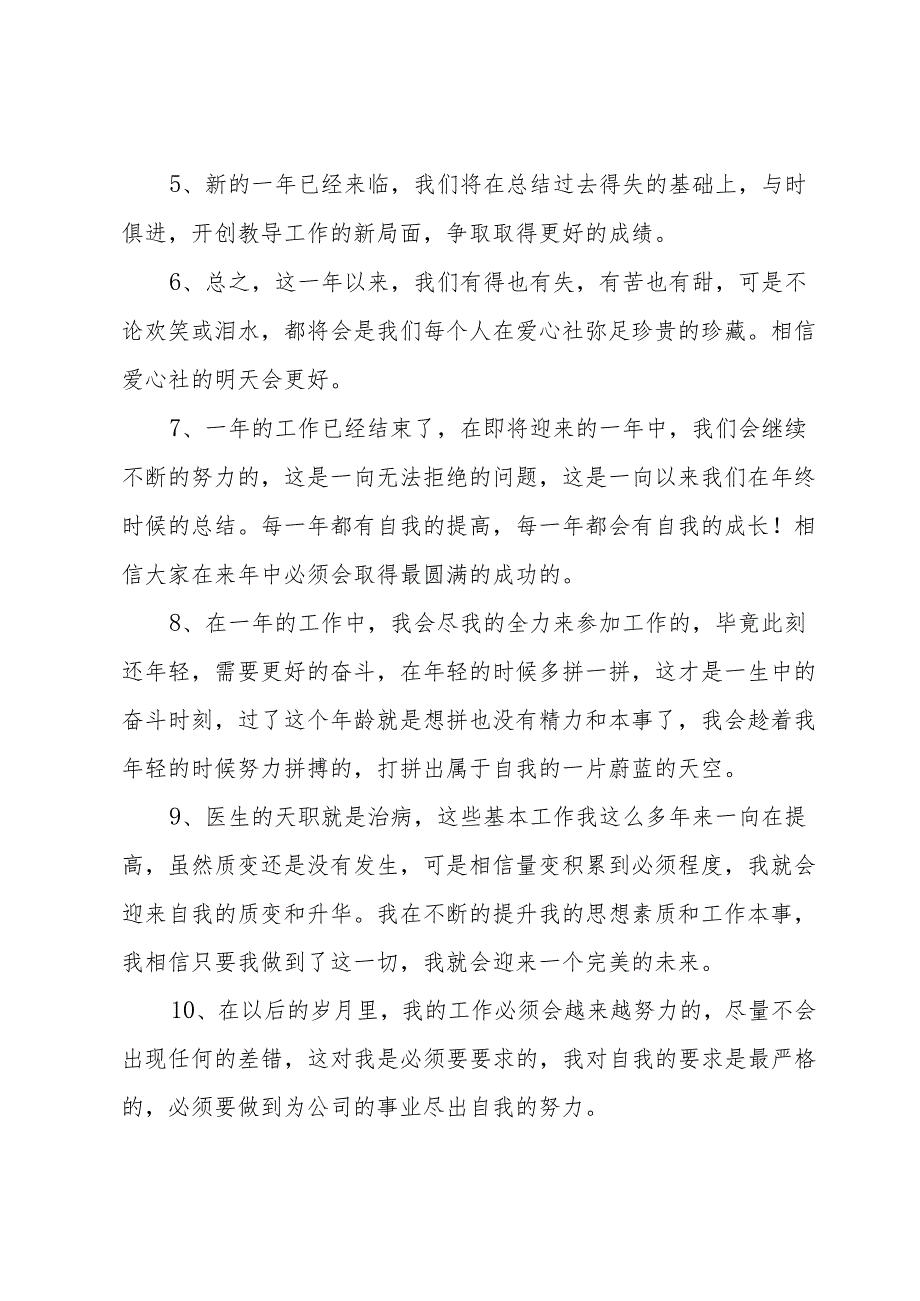 5、新的一年已经来临，我们将在总结过去得失的基础上，与时
俱进，开创教导工作的新局面，争取取得更好的成绩。
6、总之，这一年以来，我们有得也有失，有苦也有甜，可是不
论欢笑或泪水，都将会是我们每个人在爱心社弥足珍贵的珍藏。相信
爱心社的明天会更好。
7、一年的工作已经结束了，在即将迎来的一年中，我们会继续
不断的努力的，这是一向无法拒绝的问题，这是一向以来我们在年终
时候的总结。每一年都有自我的提高，每一年都会有自我的成长！相
信大家在来年中必须会取得最圆满的成功的。
8、在一年的工作中，我会尽我的全力来参加工作的，毕竟此刻
还年轻，需要更好的奋斗，在年轻的时候多拼一拼，这才是一生中的
奋斗时刻，过了这个年龄就是想拼也没有精力和本事了，我会趁着我
年轻的时候努力拼搏的，打拼出属于自我的一片蔚蓝的天空。
9、医生的天职就是治病，这些基本工作我这么多年来一向在提
高，虽然质变还是没有发生，可是相信量变积累到必须程度，我就会
迎来自我的质变和升华。我在不断的提升我的思想素质和工作本事，
我相信只要我做到了这一切，我就会迎来一个完美的未来。
10、在以后的岁月里，我的工作必须会越来越努力的，尽量不会
出现任何的差错，这对我是必须要要求的，我对自我的要求是最严格
的，必须要做到为公司的事业尽出自我的努力。